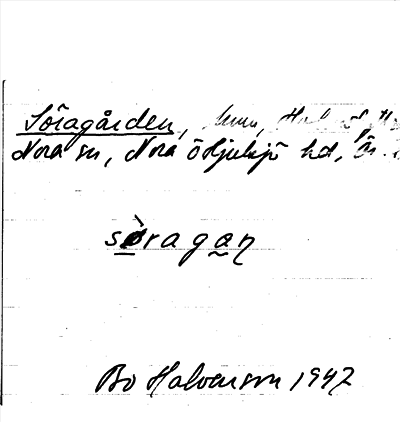 Söragården,
Nora sn, Nora o Hjulsjö hd, Ör.
sὸragaꞑ
Bo Halvarson 1947